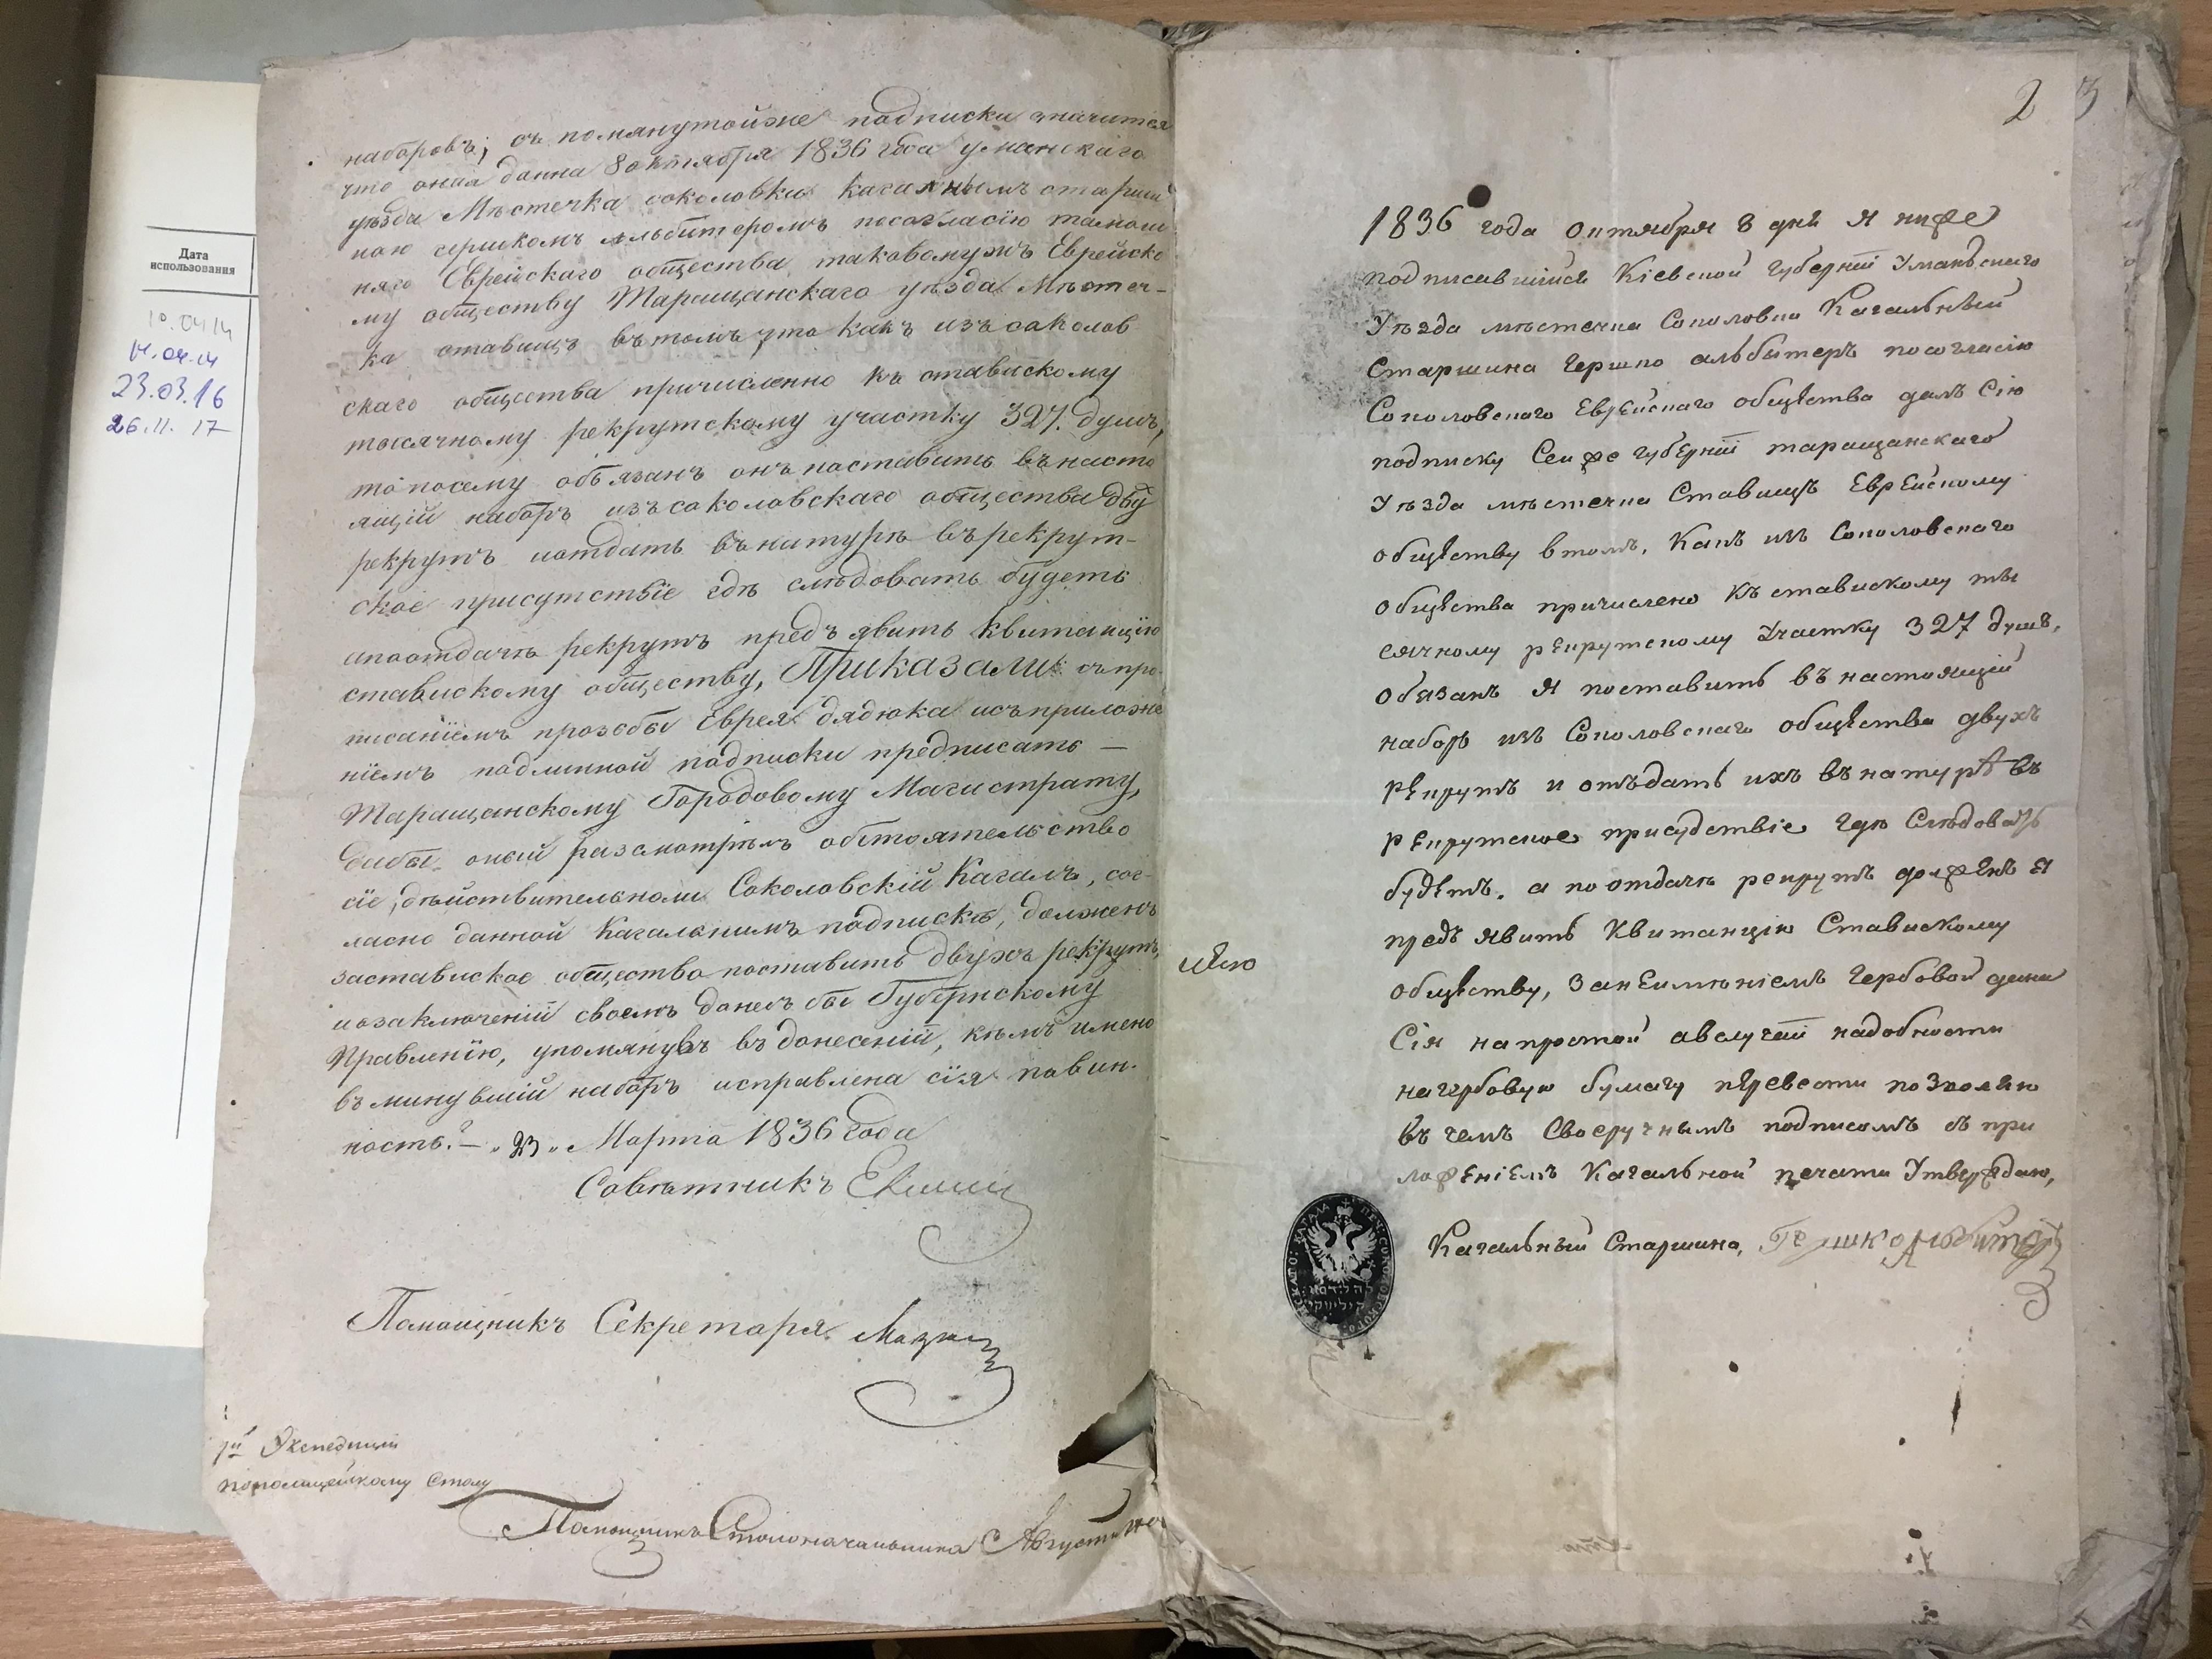 Дата
использования
10.04.14
11.04.14
23.03.16
26.11.17
наборовъ; съ помянутойже подписки значится
что оная данна 8 октября 1836 года уманскаго
уѣзда Мѣстечка соколовки кагалнымъ старши
ною гершкомъ альбитеромъ посогласію тамош
няго Еврейскаго общества таковомужъ Еврейско
му обществу Таращанскаго уѣзда Мѣстеч-
ка ставищъ вътомъ, что какъ изъ соколов
скаго общества причисленно къ ставискому
тысячному рекрутскому участку 327. душъ,
то посему обязанъ онъ поставить въ насто
ящій наборъ изъ соколовскаго общества двухъ
рекрутъ и отдать въ натурѣ въ рекрут-
ское присутствіе гдѣ слѣдовать будетъ
апоотдачѣ рекрутъ предъявить квитанцію
ставискому обществу, Приказали: съ про-
писаніемъ прозьбы Еврея дядюка и съ приложе
ніемъ подлинной подписки предписать —
Таращанскому Городовому Магистрату,
дабы оный разсмотрѣлъ обстоятельство
сіе, дѣйствительноли Соколовскій Кагалъ, сог-
ласно данной Кагальнимъ подпискѣ, долженъ
заставиское общество поставить двухъ рекрутъ,
и озаключеніи своемъ донесъ бы Губернскому
Правленію, упомянувъ въ донесеніи, кѣмъ имено
въ минувшій наборъ исправлена сія повин-
ность.? — „23„ Марта 1836 года
Совѣтникъ
Помощникъ Секретаря
1й Экспедиціи
по полицейскому столу
Помощникъ Столоначальника
2 3
1836 года октября 8 дня я ниже
подписавшійся Кіевской губерніи Уманьскаго
Уѣзда мѣстечка Соколовки Кагальный
Старшина Гершко альбитеръ посогласію
Соколовскаго Еврейскаго общества далъ Сію
подписку Сейже губерніи таращанскаго
Уѣзда мѣстечка Ставищъ Еврейскому
обществу втомъ, Какъ изъ Соколовскаго
общества причислено къ ставискому ты
сячному рекрутскому участку 327 душъ,
обязанъ я поставить въ настоящій
наборъ изъ Соколовскаго общества двухъ
рекрутъ и отъдать ихъ въ натурѣ въ
рекрутское присудствіе гдѣ Слѣдовать
будетъ. а по отдачѣ рекрутъ долженъ я
предъявить Квитанцію Ставискому
обществу, Занеимѣніемъ гербовой дана
Сія напростой авслучаи надобности
на гербовую бумагу перевести позволяю
въ чемъ Своеручнымъ подписомъ съ при
ложеніемъ Кагальной печати Утверждаю,
Кагальный Старшина, Гершко Альбитер